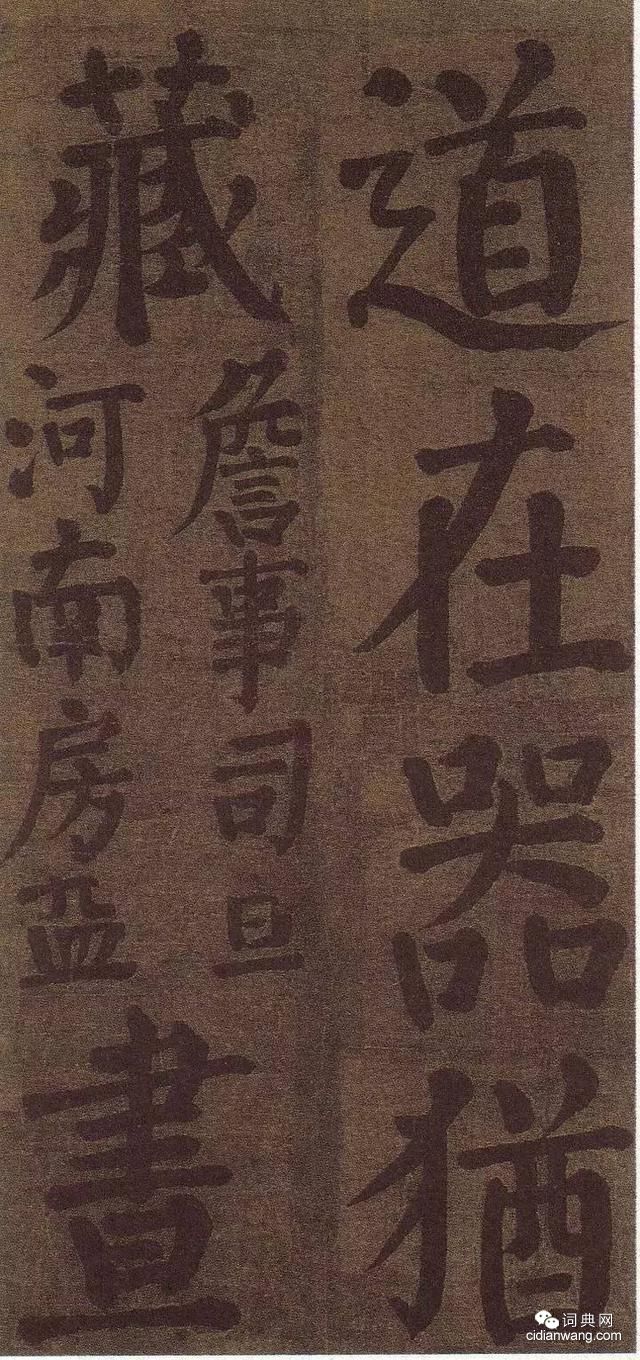 道在器猶
藏
詹事司旦
河南房
晝
词典网
cidianwang.com